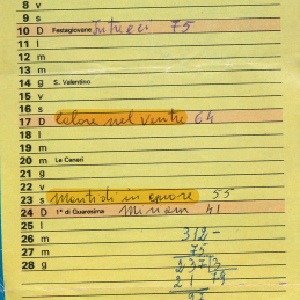 8 v
9 s
10 D Festagiovane 75
11 l
12 m
13 m
14 g S. Valentino
15 v
16 s
17 D Calore nel ventre 64
18 l
19 m
20 m Le Ceneri
21 g
22 v
23 s in amore 55
24 D 1ª di Quaresima 41
25 l
26 m 312-
27 m 75
28 g 237 | 3
21 79
27